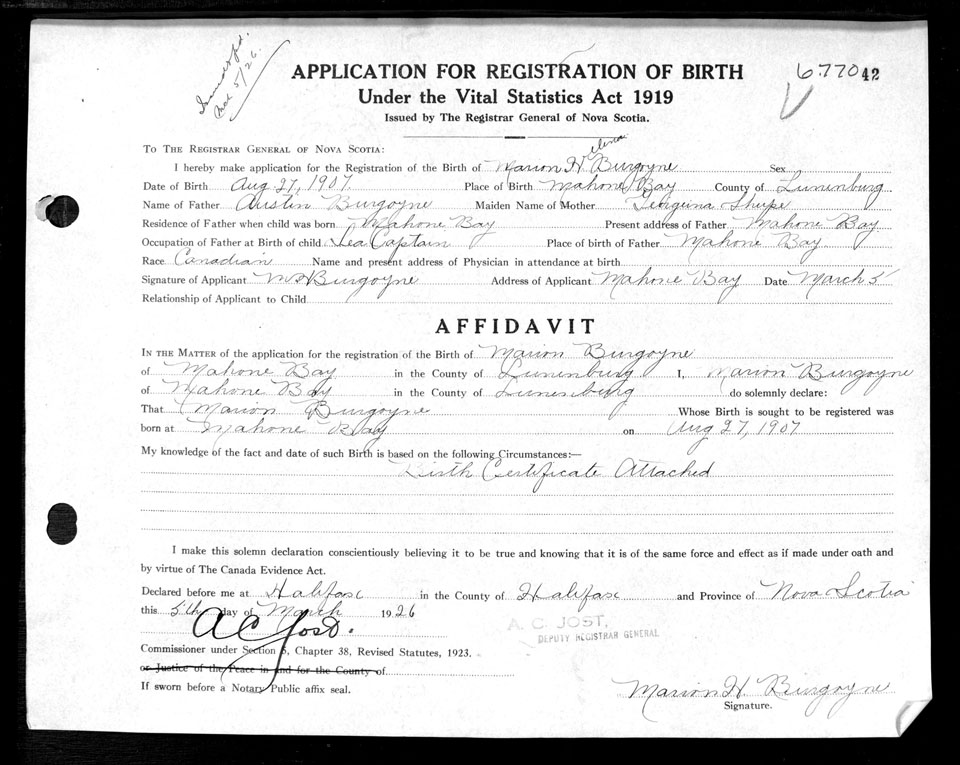 Mch 5/26.
APPLICATION FOR REGISTRATION OF BIRTH
67704 2
Under the Vital Statistics Act 1919
Issued by The Registrar General of Nova Scotia.
TO THE REGISTRAR GENERAL OF NOVA SCOTIA:
I hereby make application for the Registration of the Birth of Marion H Burgoyne Sex
Date of Birth Aug 27, 1907 Place of Birth Mahone Bay County of Lunenburg
Name of Father Austin Burgoyne Maiden Name of Mother Georgina
Residence of Father when child was born Mahone Bay Present address of Father Mahone Bay
Occupation of Father at Birth of child Sea Captain Place of birth of Father Mahone Bay
Race Canadian Name and present address of Physician in attendance at birth
Signature of Applicant Burgoyne Address of Applicant Mahone Bay Date March 5
Relationship of Applicant to Child
AFFIDAVIT
IN THE MATTER of the application for the registration of the Birth of Marion Burgoyne
of Mahone Bay in the County of Lunenburg I, Marion Burgoyne
of Mahone Bay in the County of Lunenburg do solemnly declare:
That Marion Burgoyne Whose Birth is sought to be registered was
born at Mahone Bay on Aug 27, 1907
My knowledge of the fact and date of such Birth is based on the following Circumstances:—
Birth Certificate Attached
I make this solemn declaration conscientiously believing it to be true and knowing that it is of the same force and effect as if made under oath and
by virtue of The Canada Evidence Act.
Declared before me at Halifax in the County of Halifax and Province of Nova Scotia
this 5th day of March 1926
A C Jost.
A. C. JOST,
DEPUTY REGISTRAR GENERAL
Commissioner under Section 5, Chapter 38, Revised Statutes, 1923.
or Justice of the Peace in and for the County of
If sworn before a Notary Public affix seal.
Marion H. Burgoyne
Signature.